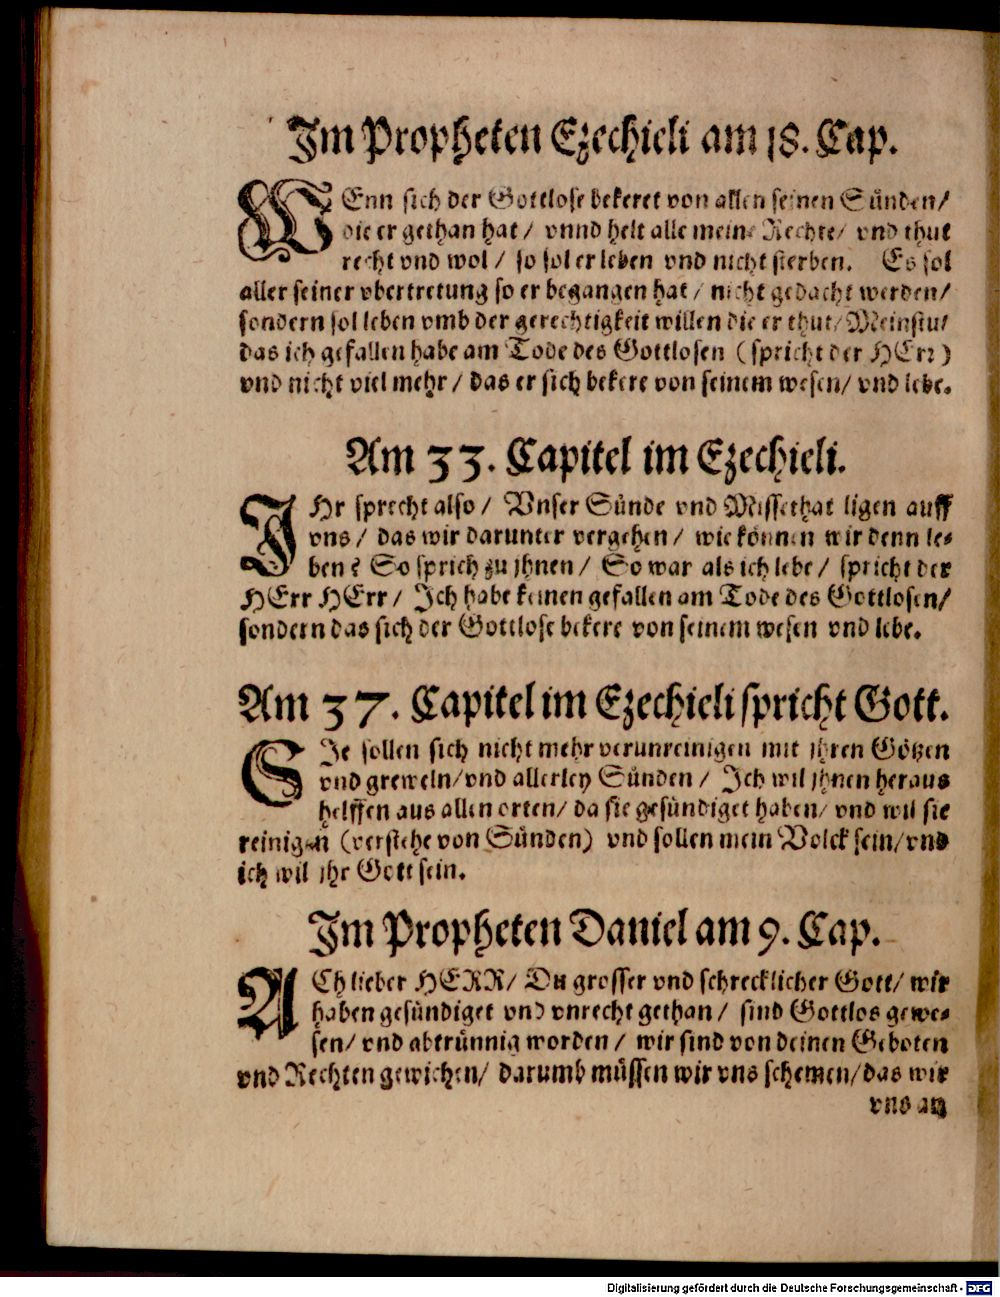 Im Propheten Ezechieli am 18. Cap.
WEnn sich der Gottlose bekeret von allen seinen Sünden/
die er gethan hat/ vnnd helt alle meine Rechte/ vnd thut
recht vnd wol/ so sol er leben vnd nicht sterben. Es sol
aller seiner vbertretung so er begangen hat/ nicht gedacht werden/
sondern sol leben vmb der gerechtigkeit willen die er thut/ Meinstu/
das ich gefallen habe am Tode des Gottlosen (spricht der HErr)
vnd nicht viel mehr/ das er sich bekere von seinem wesen/ vnd lebe.
Am 33. Capitel im Ezechieli.
IHr sprecht also/ Vnser Sünde vnd Missethat ligen auff
vns/ das wir darunter vergehen/ wie können wir denn le-
ben? So sprich zu jhnen/ So war als ich lebe/ spricht der
HErr HErr/ Ich habe keinen gefallen am Tode des Gottlosen/
sondern das sich der Gottlose bekere von seinem wesen vnd lebe.
Am 37. Capitel im Ezechieli spricht Gott.
SIe sollen sich nicht mehr verunreinigen mit jhren Götzen
vnd greweln/ vnd allerley Sünden/ Ich wil jhnen heraus
helffen aus allen orten/ da sie gesündiget haben/ vnd wil sie
reinigen (verstehe von Sünden) vnd sollen mein Volck sein/ vnd
ich wil jhr Gott sein.
Im Propheten Daniel am 9. Cap.
ACh lieber HERR/ Du grosser vnd schrecklicher Gott/ wir
haben gesündiget vnd vnrecht gethan/ sind Gottlos gewe-
sen/ vnd abtrünnig worden/ wir sind von deinen Geboten
vnd Rechten gewichen/ darumb müssen wir vns schemen/ das wir
vns an
Digitalisierung gefördert durch die Deutsche Forschungsgemeinschaft - DFG